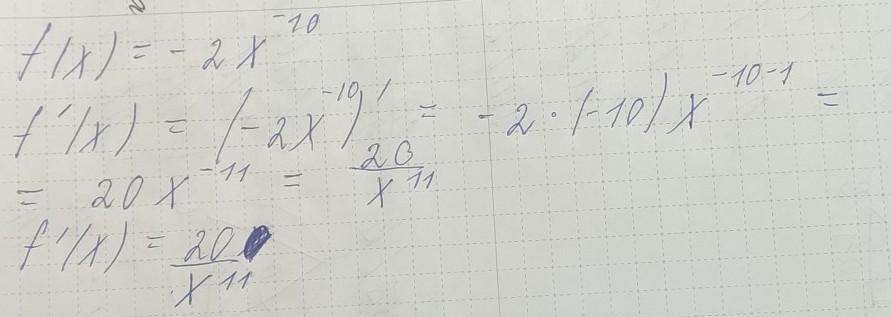 f(x) = -2x^{-10}
f'(x) = (-2x^{-10})' = -2·(-10)x^{-10-1} =
= 20x^{-11} = \frac{20}{x^{11}}
f'(x) = \frac{20}{x^{11}}